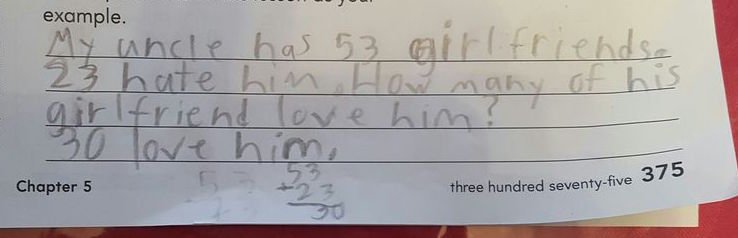 example.
My uncle has 53 girlfriends.
23 hate him. How many of his
girlfriend love him?
30 love him.
53
-23
30
Chapter 5
three hundred seventy-five 375